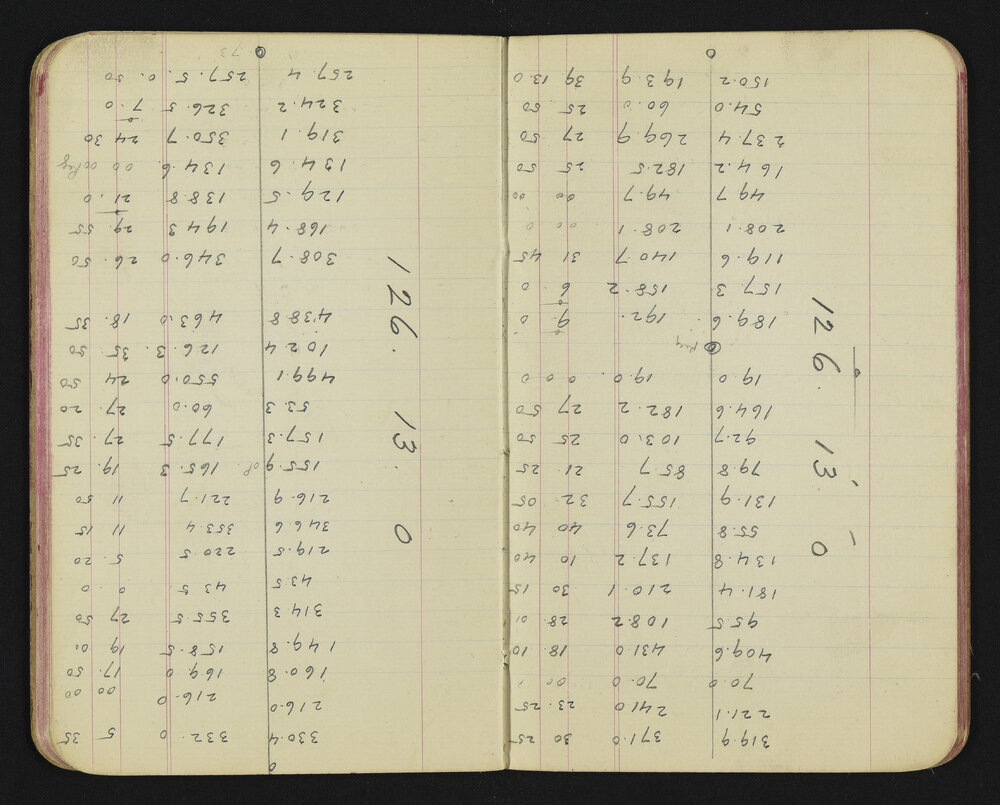 319.9 371.0 30 25
221.1 241.0 23.25
70.0 70.0 00
409.6 431.0 18.10
95.5 108.2 28.01
181.4 210.1 30 15
134.8 137.2 10 40
55.8 73.6 40 40
131.9 155.7 32 05
79.8 85.7 21 25
92.7 103.0 25 50
164.6 182.2 27 50
19.0 19.0 0 0 0
Peg
189.6 192. 9° 0
157.3 158.2 6° 0
119.6 140.7 31 45
208.1 208.1 0 0 0
49.7 49.7 00 00
164.2 182.5 25 50
237.4 269.9 27 50
54.0 60.0 25 50
150.2 193.9 39 13.0
0
126° 13' 0
0
330.4 332.0 5 35
216.0 216.0 00 00
160.8 169.0 17.50
149.8 158.5 19 01
314.3 355.5 27 50
43.5 43.5 0 0
219.5 220.5 5.20
346.6 353.4 11 15
216.9 221.7 11 50
155.9 165.3 19.25
157.3 177.5 27.35
53.3 60.0 27.20
499.1 550.0 24 50
102.4 126.3 35.50
438.8 463.0 18.35
308.7 346.0 26.50
168.4 194.3 29.55
129.5 138.8 21°.0
134.6 134.6 00 00 Peg
319.1 350.7 24 30
324.2 326.5 7°.0
257.4 257.5 0.50
73
126. 13. 0